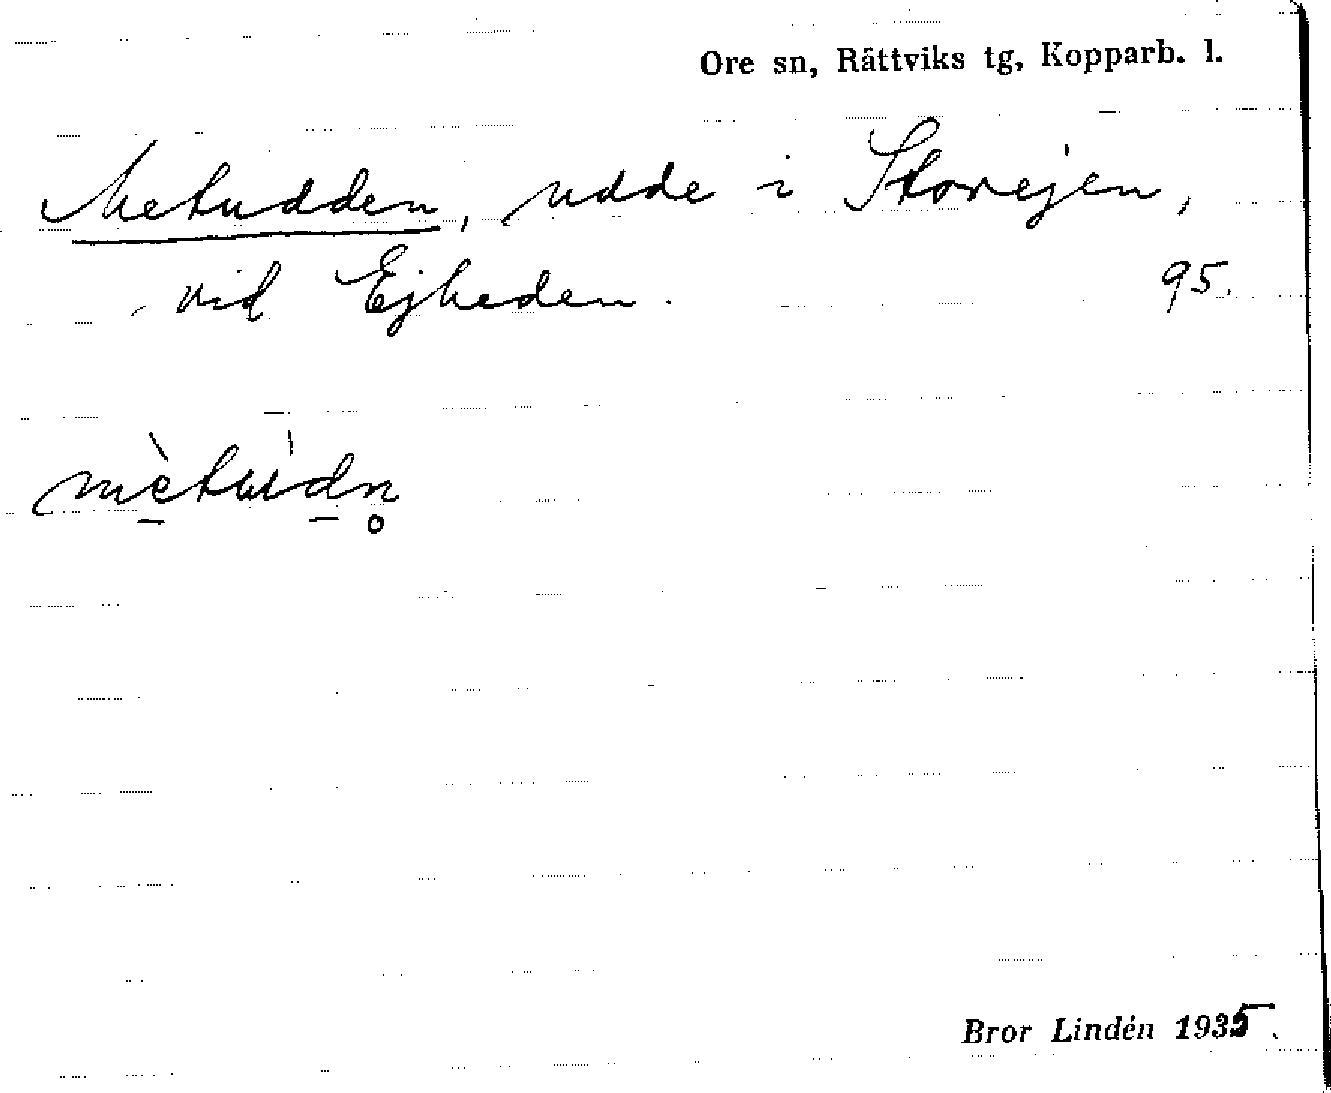 Ore sn, Rättviks tg, Kopparb. l.
Metudden, udde i Storejen,
vid Ejheden. 95.
mètùdn̥
Bror Lindén 1935.